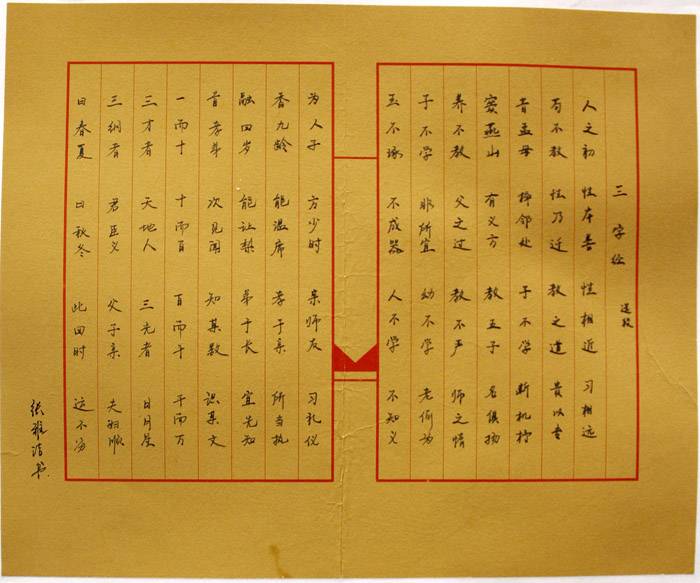 三字经 选段
人之初 性本善 性相近 习相远
苟不教 性乃迁 教之道 贵以专
昔孟母 择邻处 子不学 断机杼
窦燕山 有义方 教五子 名俱扬
养不教 父之过 教不严 师之惰
子不学 非所宜 幼不学 老何为
玉不琢 不成器 人不学 不知义
为人子 方少时 亲师友 习礼仪
香九龄 能温席 孝于亲 所当执
融四岁 能让梨 弟于长 宜先知
首孝弟 次见闻 知某数 识某文
一而十 十而百 百而千 千而万
三才者 天地人 三光者 日月星
三纲者 君臣义 父子亲 夫妇顺
曰春夏 曰秋冬 此四时 运不穷
张雅洁书